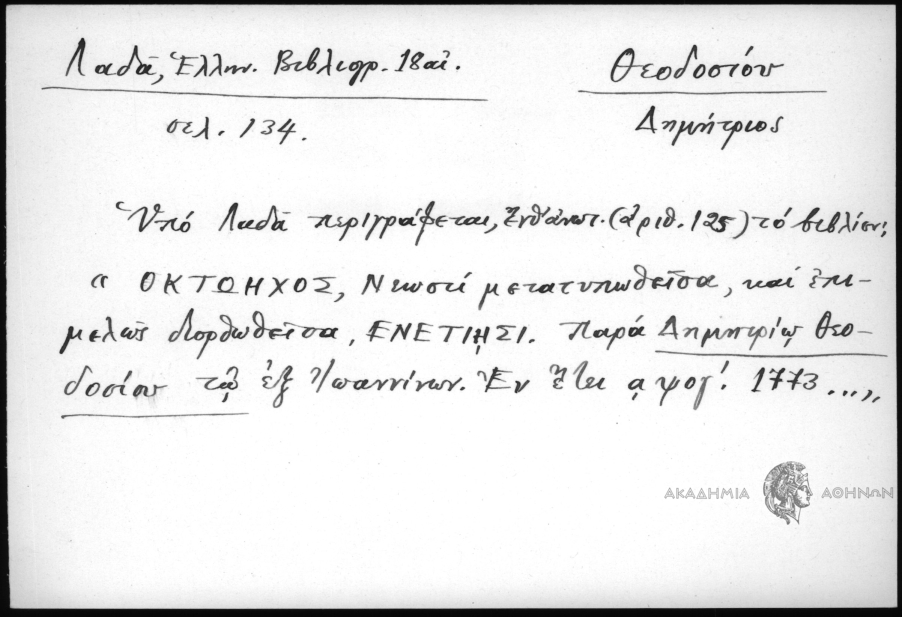 Λαδᾶ, Ἑλλην. Βιβλιογρ. 18 αἰ.
Θεοδοσίου
σελ. 134.
Δημήτριος
Ὑπό Λαδᾶ περιγράφεται, ἔνθ' ἀνωτ. (ἀριθ. 125) τό βιβλίον:
« ΟΚΤΩΗΧΟΣ, Νεωστί μετατυπωθεῖσα, καί ἐπι-
μελῶς διορθωθεῖσα, ΕΝΕΤΙῌΣΙ. Παρά Δημητρίῳ Θεο-
δοσίου τῷ ἐξ Ἰωαννίνων. Ἐν ἔτει ͵αψογ΄. 1773 ...»
ΑΚΑΔΗΜΙΑ ΑΘΗΝΩΝ